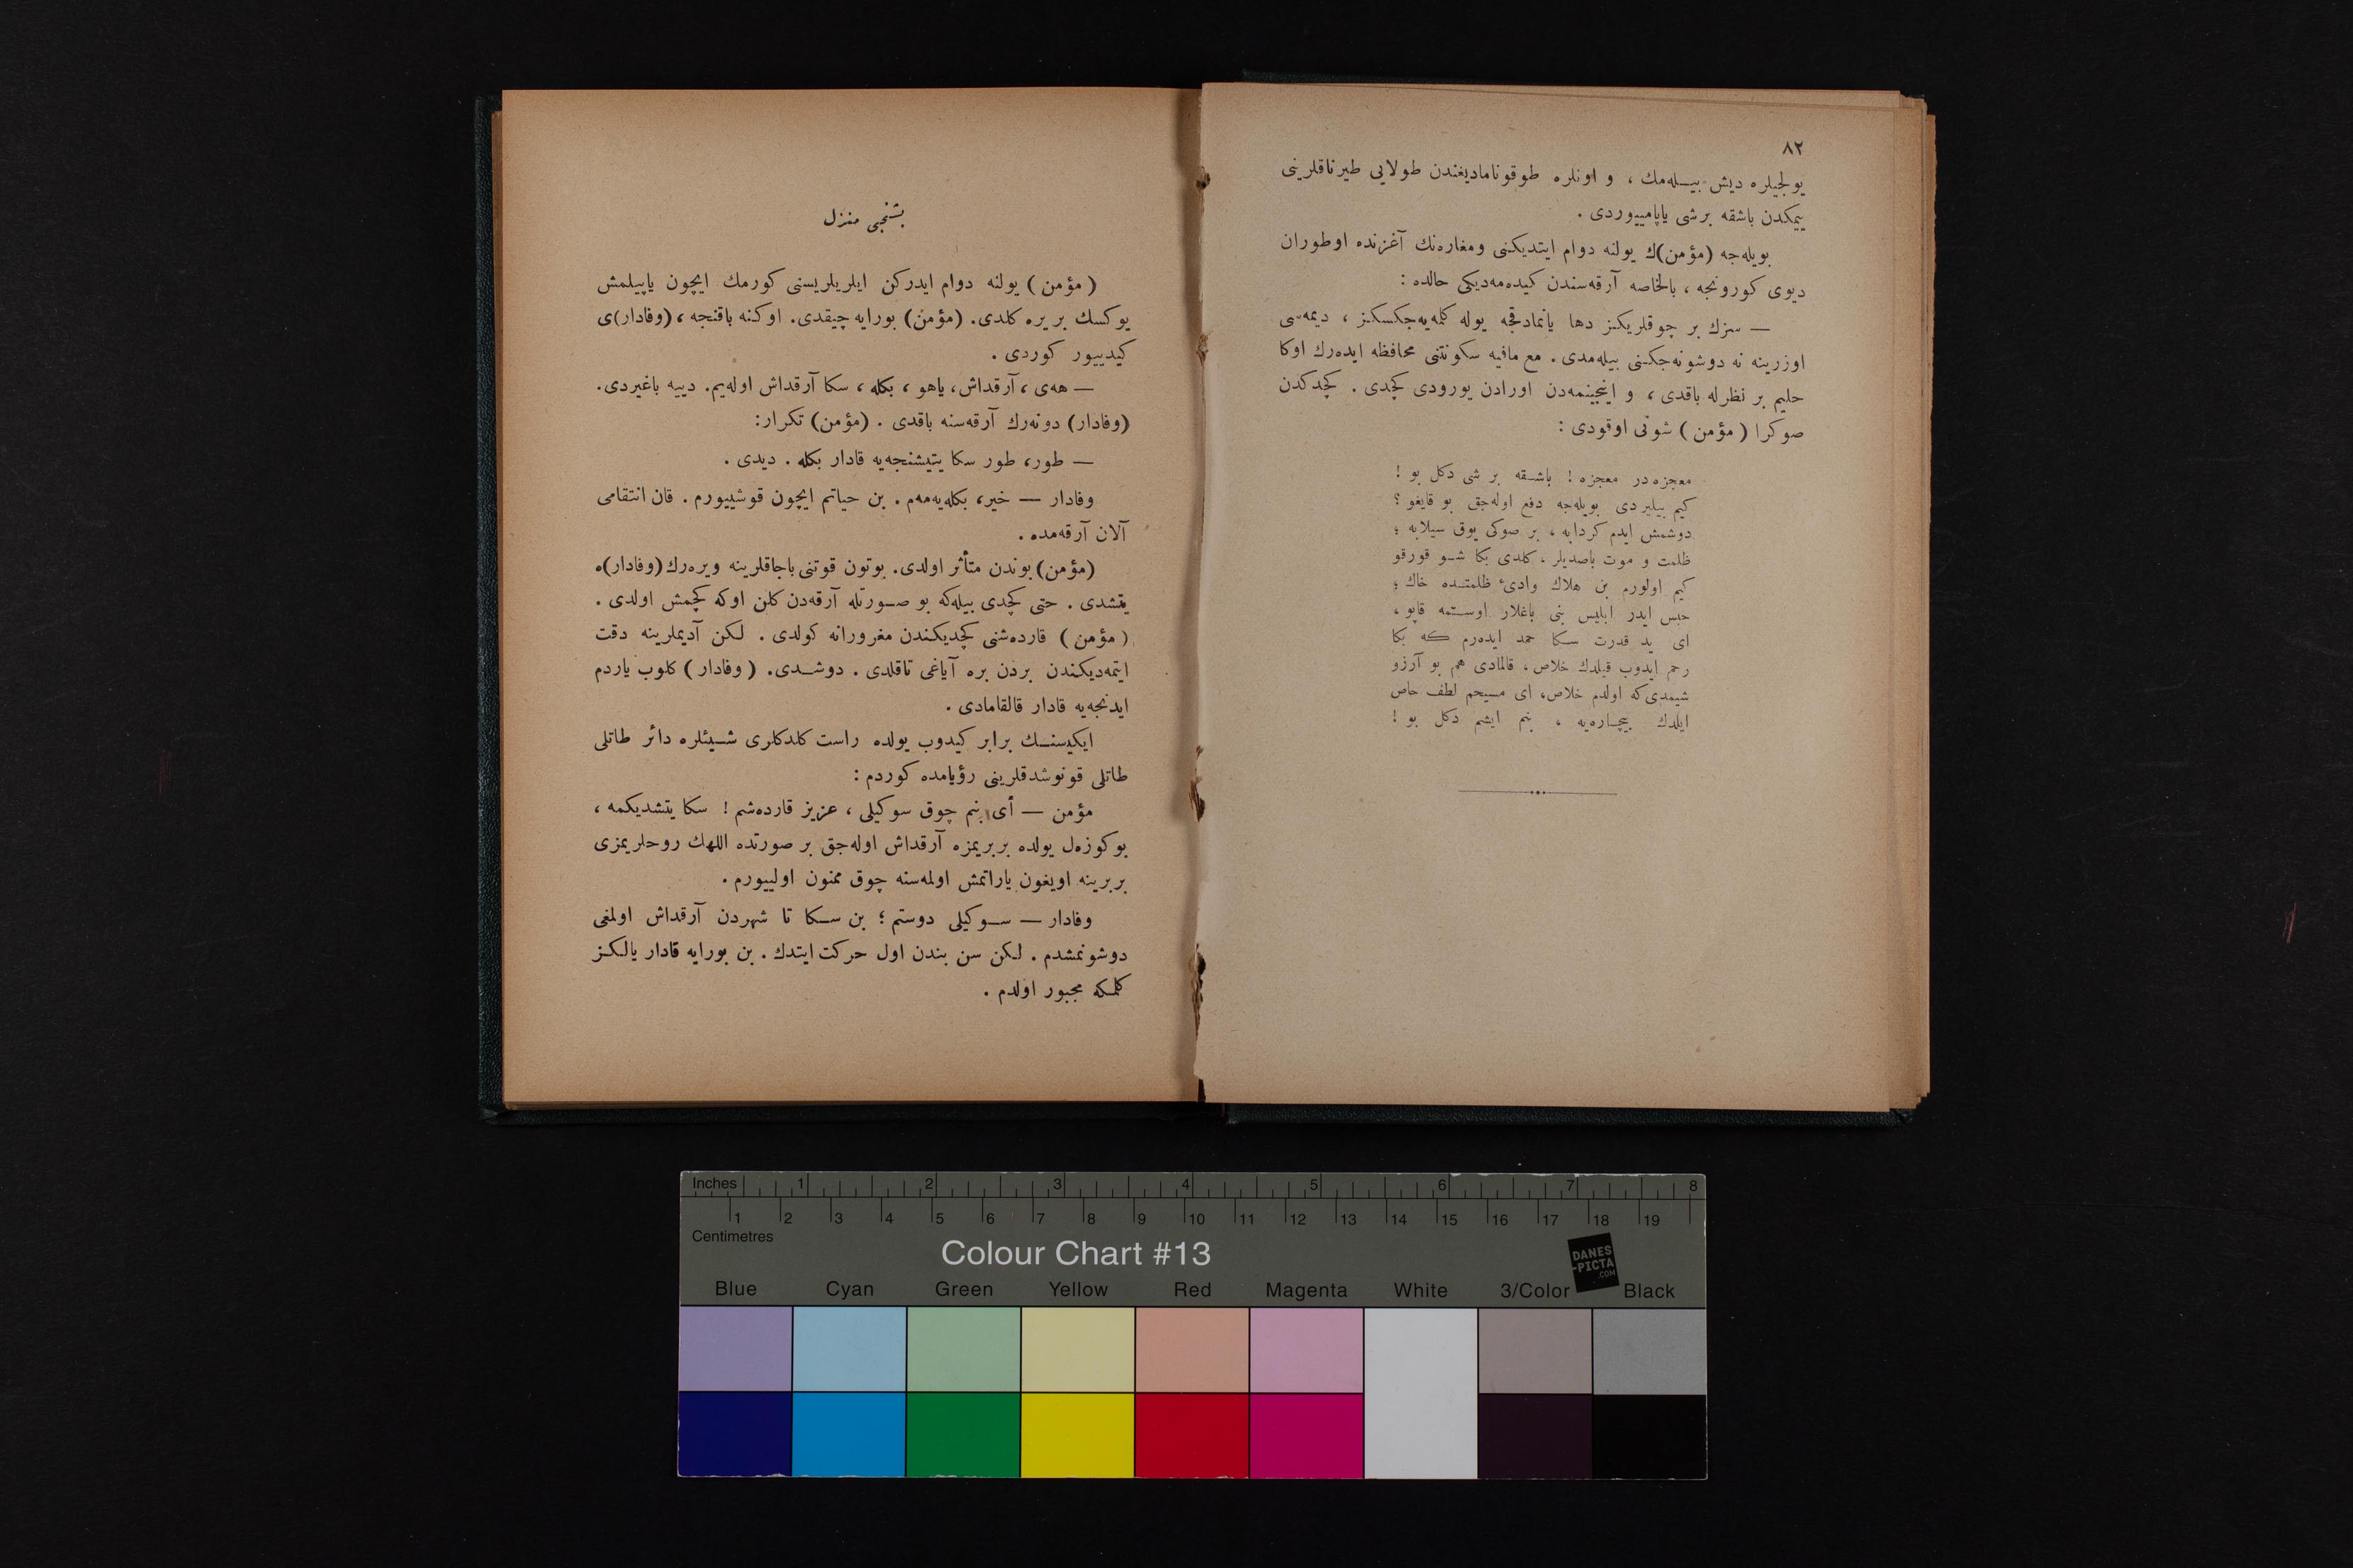 ٨٢
يولجيلره ديش بيـله‌مك ، و اونلره طوقوناماديغندن طولايى طيرناقلرينى
ييمكدن باشقه برشى ياپامييوردى .
بويله‌جه (مؤمن)ك يولنه دوام ايتديكنى ومغاره‌نك آغزنده اوطوران
ديوى كورونجه ، بالخاصه آرقه‌سندن كيده‌مه‌ديكى حالده :
— سزك بر چوقلريكز دها يانمادقجه يوله كلمه‌يه‌جكسكز ، ديمه‌سى
اوزرينه نه دوشونه‌جكنى بيله‌مدى . مع مافيه سكونتنى محافظه ايده‌رك اوكا
حليم بر نظرله باقدى ، و اينجينمه‌دن اورادن يورودى كچدى . كچدكدن
صوكرا ( مؤمن ) شونى اوقودى :
معجزه‌در معجزه ! باشـقه بر شى دكل بو !
كيم بيليردى بويله‌جه دفع اوله‌جق بو قايغو ؟
دوشمش ايدم كردابه ، بر صوكى يوق سيلابه ؛
ظلمت و موت باصديلر ، كلدى بكا شـو قورقو
كيم اولورم بن هلاك وادئ ظلمتـده خاك ؛
حبس ايدر ابليس بنى باغلار اوسـتمه قاپو ،
اى يد قدرت سـكا حمد ايده‌رم كه بكا
رحم ايدوب قيلدك خلاص ، قالمادى هم بو آرزو
شيمدى‌كه اولدم خلاص، اى مسيحم لطف خاص
ايلدك بيچـاره‌يه ، بنم ايشم دكل بو !
بشنجى منزل
( مؤمن ) يولنه دوام ايدركن ايلريلريسنى كورمك ايچون ياپيلمش
يوكسك بر يره كلدى. (مؤمن) بورايه چيقدى. اوكنه باقنجه ، (وفادار)ى
كيدييور كوردى .
— هه‌ى ، آرقداش، ياهو ، بكله ، سكا آرقداش اوله‌يم. دييه باغيردى.
(وفادار) دونه‌رك آرقه‌سنه باقدى . (مؤمن) تكرار:
— طور، طور سكا يتيشنجه‌يه قادار بكله . ديدى .
وفادار — خير، بكله‌يه‌مه‌م . بن حياتم ايچون قوشييورم . قان انتقامى
آلان آرقه‌مده .
(مؤمن) بوندن متأثر اولدى. بوتون قوتنى باجاقلرينه ويره‌رك (وفادار)ه
يتشدى . حتى كچدى بيله‌كه بو صـورتله آرقه‌دن كلن اوكه كچمش اولدى .
( مؤمن ) قارده‌شنى كچديكندن مغرورانه كولدى . لكن آديملرينه دقت
ايتمه‌ديكندن بردن بره آياغى تاقلدى . دوشـدى. ( وفادار ) كلوب ياردم
ايدنجه‌يه قادار قالقامادى .
ايكيسنـك برابر كيدوب يولده راست كلدكلرى شـيئلره دائر طاتلى
طاتلى قونوشدقلرينى رؤيامده كوردم :
مؤمن — أى بنم چوق سوكيلى ، عزيز قارده‌شم ! سكا يتشديكمه ،
بو كوزه‌ل يولده بربريمزه آرقداش اوله‌جق بر صورتده اللهك روحلريمزى
بربرينه اويغون ياراتمش اولمه‌سنه چوق ممنون اولييورم .
وفادار — سـوكيلى دوستم ؛ بن سـكا تا شهردن آرقداش اولمغى
دوشونمشدم . لكن سن بندن اول حركت ايتدك . بن بورايه قادار يالكز
كلمكه مجبور اولدم .
Inches 1 2 3 4 5 6 7 8
1 2 3 4 5 6 7 8 9 10 11 12 13 14 15 16 17 18 19
Centimetres
Colour Chart #13
DANES
-PICTA
.COM
Blue Cyan Green Yellow Red Magenta White 3/Color Black